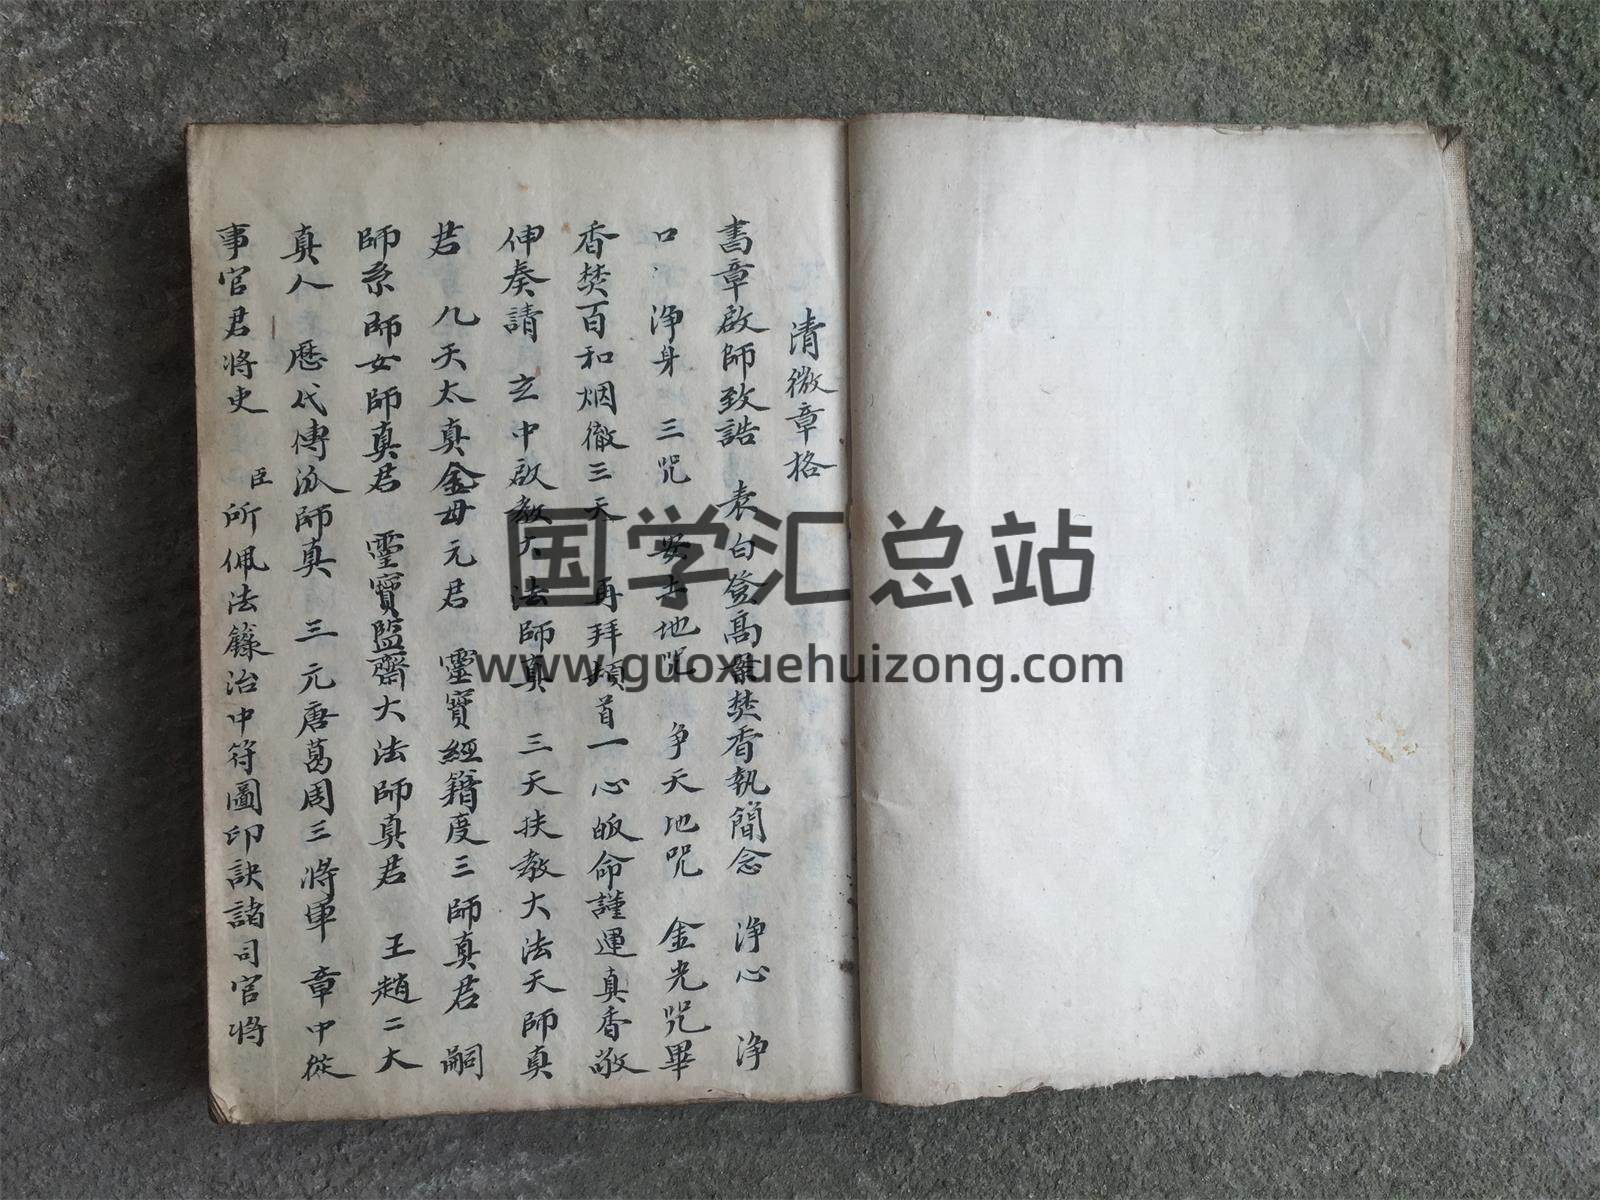 清微章格
書章啟師致誥 表白登高梁焚香執簡念 淨心 淨
口 淨身 三咒 安土地咒 争天地咒 金光咒畢
香焚百和烟徹三天 再拜頫首一心皈命謹運真香敬
伸奏請 玄中啟教大法師真 三天扶教大法天師真
君 九天太真金母元君 靈寶經籍度三師真君 嗣
師系師女師真君 靈寶監齋大法師真君 王趙二大
真人 歷代傳派師真 三元唐葛周三將軍 章中從
事官君將吏 臣所佩法籙治中符圖印訣諸司官將
国学汇总站
www.guoxuehuizong.com